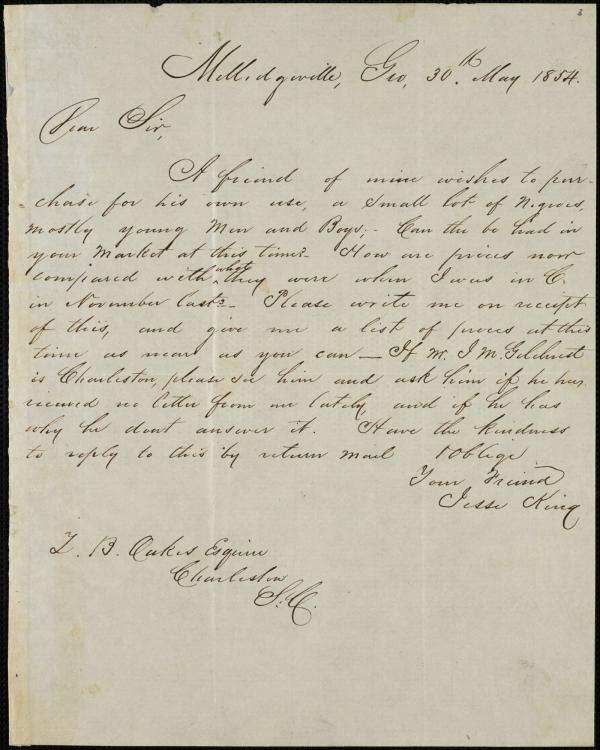 3
Milledgeville, Geo, 30th May 1854.
Dear Sir,
A friend of mine wishes to pur-
chase for his own use, a small lot of Negroes,
mostly young Men and Boys;- Can the be had in
your Market at this time?- How are prices now
compared with what they were when I was in C.
in November last?- Please write me on receipt
of this, and give me a list of prices at this
time as near as you can — If Mr. J M. Gilchrist
is Charleston, please see him and ask him if he has
recieved no letter from me lately, and if he has
why he dont answer it. Have the kindness
to reply to this by return mail & oblige
Your Freind
Jesse King
Z. B. Oakes Esquire
Charleston
S. C.